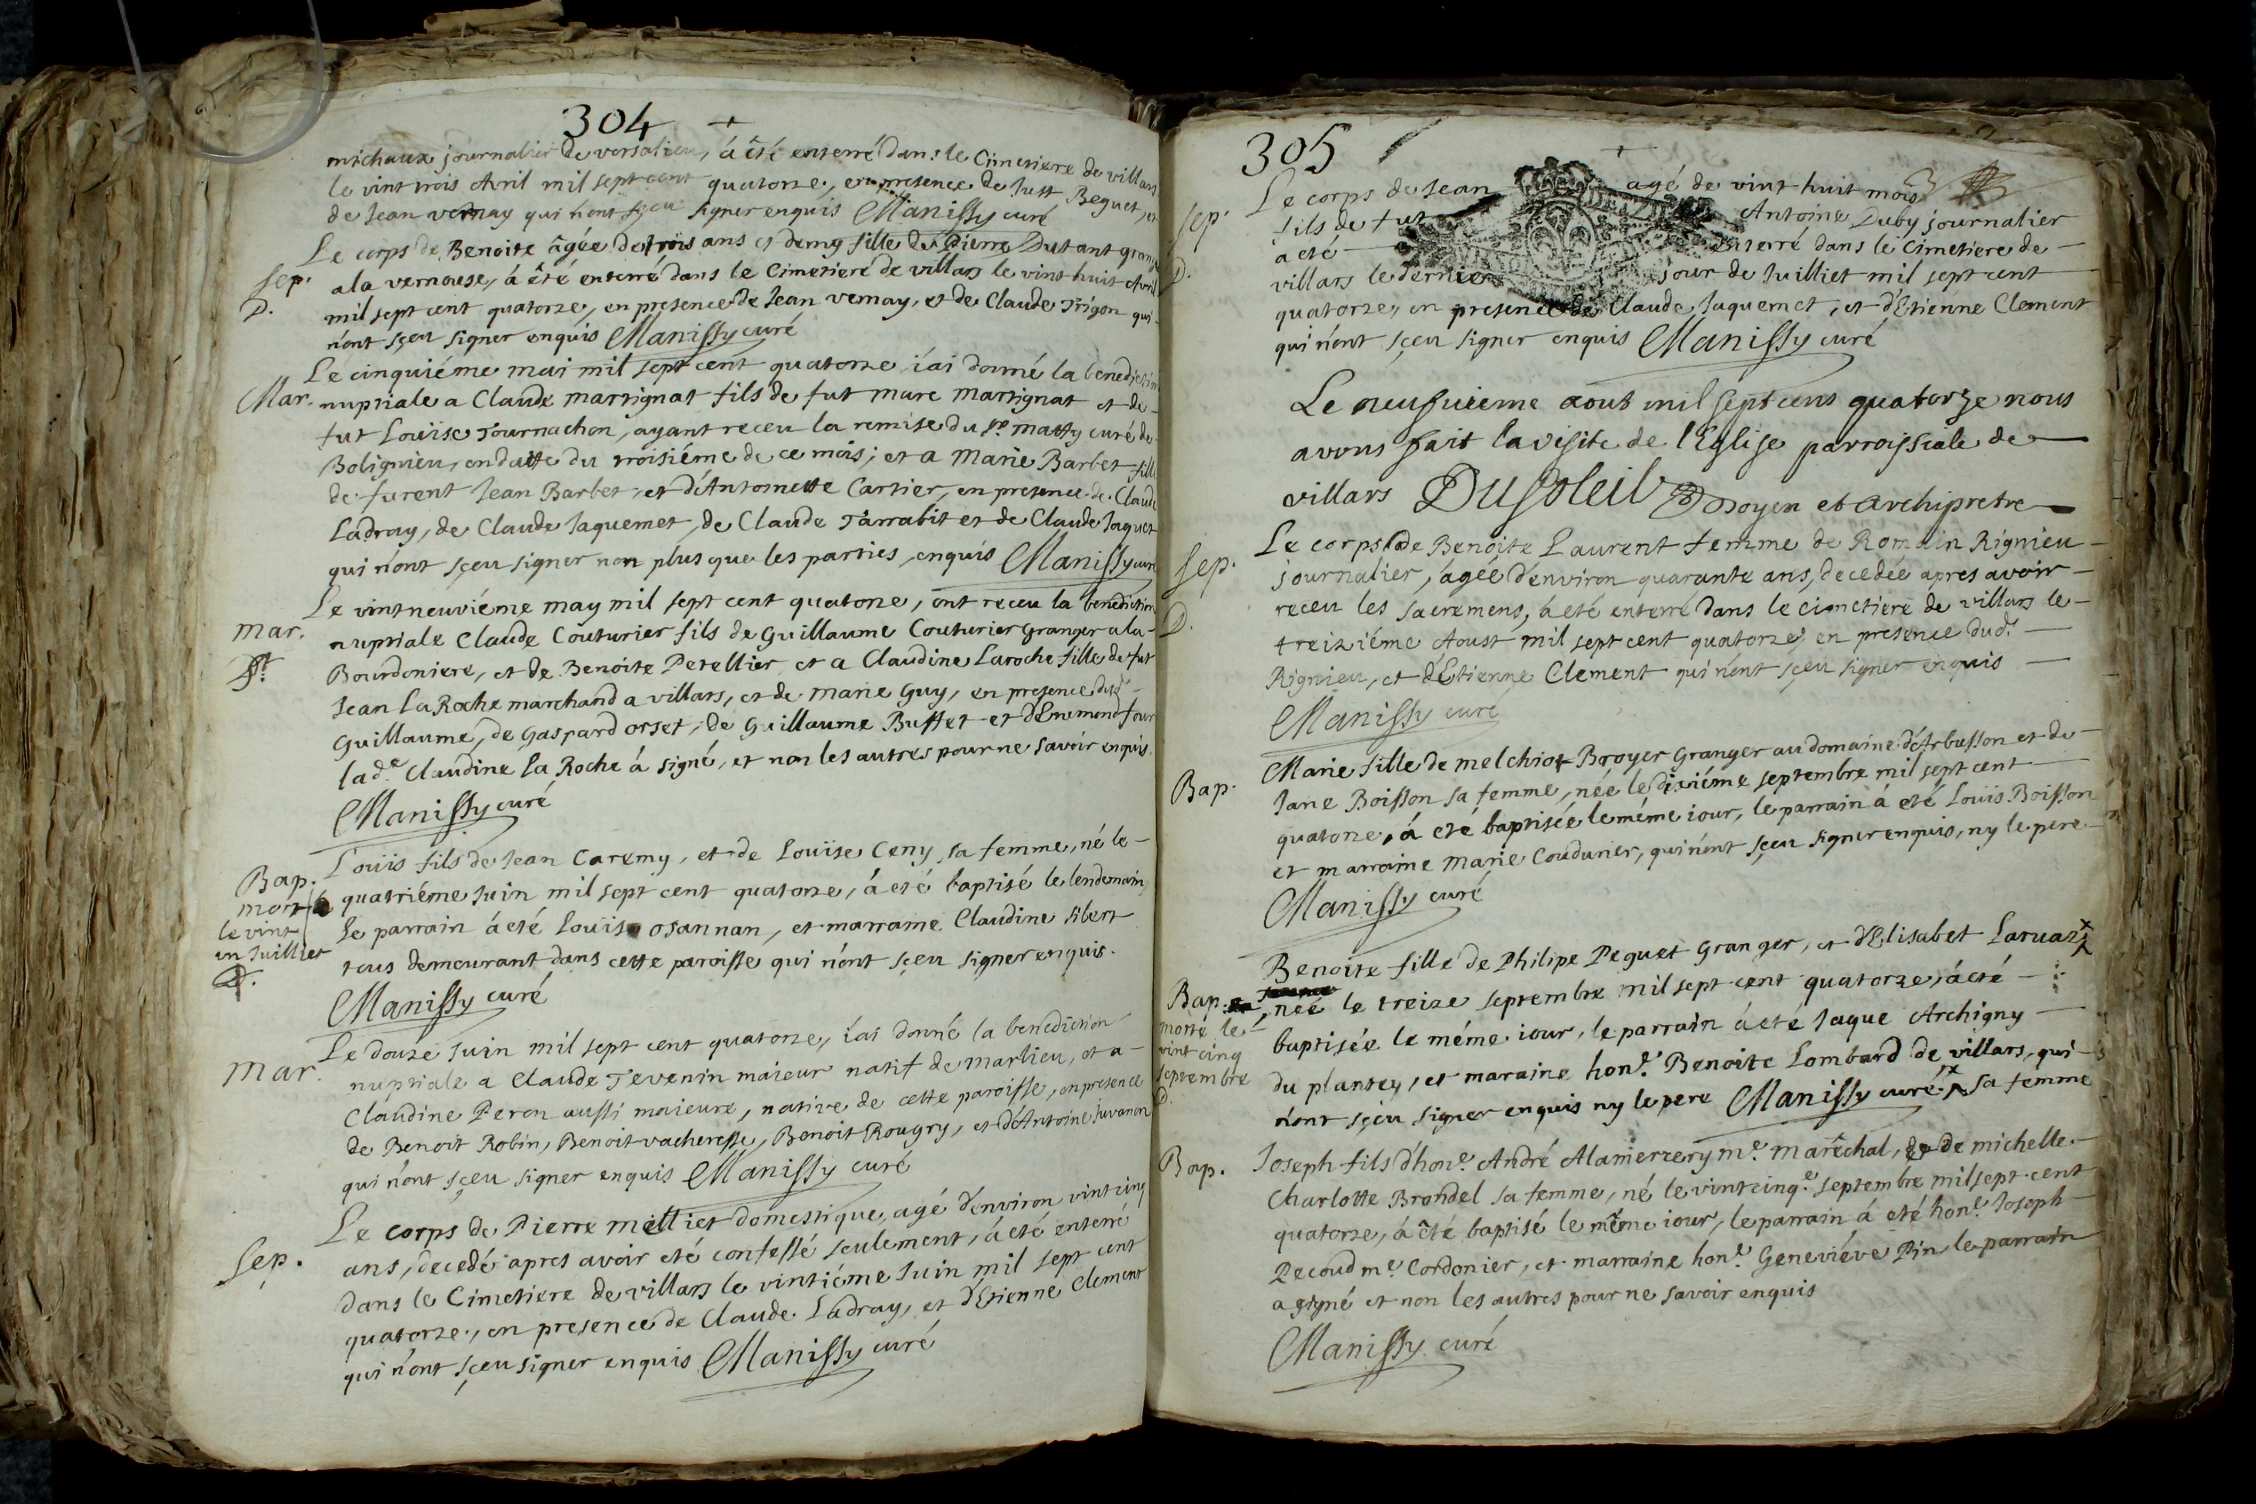 304 +
michaux journalier de versalieu, á êté enterré dans le Cimetiere de villars
le vint trois Avril mil sept cent quatorze, en presence de Just Beguet, et
de Jean vernay qui n'ont sçeu signer enquis Manissy curé
Sep. D.
Le corps de Benoite âgée de trois ans et demy fille de Pierre Dutant grang
a la vernouse, á êté enterré dans le Cimetiere de villars le vint huit Avril
mil sept cent quatorze, en presence de Jean vernay, et de Claude Trigon qui
n'ont sçeu signer enquis Manissy curé
Mar.
Le cinquiéme mai mil sept cent quatorze i'ai donné la benediction
nuptiale a Claude martignat fils de fut marc martignat et de
fut Louïse Tournachon, ayant receu la remise du Sr. matty curé de
Bolignieu, en datte du troisiéme de ce mois; et a Marie Barbet fille
de furent Jean Barbet, et d'Antoinette Cartier, en presence de Claude
Ladray, de Claude Jaquemet, de Claude Tarrabit et de Claude Jaquet
qui n'ont sçeu signer non plus que les parties, enquis Manissy curé
mar.
Le vint neuviéme may mil sept cent quatorze, ont receu la benediction
nuptiale Claude Couturier fils de Guillaume Couturier Granger a la
Bourdoniere, et de Benoite Perellier et a Claudine Laroche fille de fut
Jean La Roche marchand a villars, et de marie Guy, en presence dud.
Guillaume, de Gaspard orset, de Guillaume Buffet et d'Enemond four
lad.e Claudine La Roche á signé, et non les autres pour ne savoir enquis.
Manissy curé
Bap. mort le vint un Juilliet D.
Louïs fils de Jean Caremy, et de Louïse Ceny sa femme, né le
quatriéme Juin mil sept cent quatorze, á eté baptisé le lendemain,
le parrain á eté Louïs osannan, et marraine Claudine sibert
tous demeurant dans cette paroisse qui n'ont sçeu signer enquis.
Manissy curé
Mar.
Le douze Juin mil sept cent quatorze, i'ai donné la benediction
nuptiale a Claude Tevenin maieur natif de marlieu, et a
Claudine Peron aussi maieure, native de cette paroisse, en presence
de Benoit Robin, Benoit vacheresse, Benoit Rougry, et d'Antoine Juvanon
qui n'ont sçeu signer enquis Manissy curé
Sep.
Le corps de Pierre Melliet domestique, agé d'environ vint cinq
ans, decedé apres avoir eté confessé seulement, á eté enterré
dans le Cimetiere de villars le vintiéme Juin mil sept cent
quatorze, en presence de Claude Ladray, et d'Etienne Clement
qui n'ont sçeu signer enquis Manissy curé
305
Sep. D.
Le corps de Jean agé de vint huit mois
fils de fut Antoine Duby journalier
a eté enterré dans le Cimetiere de
villars le dernier jour de Juilliet mil sept cent
quatorze, en presence de Claude Jaquemet, et d'Etienne Clement
qui n'ont sçeu signer enquis Manissy curé
Le neufvieme aout mil sept cens quatorze nous
avons fait la visite de l'Eglise parroissiale de
villars Dusoleil Doyen et archipretre
Sep. D.
Le corps de Benoite Laurent femme de Romain Rignieu
journalier, âgée d'environ quarante ans, decedée apres avoir
receu les sacremens, á eté enterré dans le cimetiere de villars le
treiziéme Aoust mil sept cent quatorze, en presence dud.
Rignieu, et d'Etienne Clement qui n'ont sçeu signer enquis
Manissy curé
Bap.
Marie fille de melchior Broyer Granger au domaine d'Arbusson et de
Jane Boisson sa femme, née le dixiéme septembre mil sept cent
quatorze, á eté baptisée le méme iour, le parrain á eté Louïs Boisson
et marraine Marie Coudurier, qui n'ont sçeu signer enquis, ny le pere
Manissy curé
Bap. morte le vint cinq septembre D.
Benoite fille de Philipe Peguet Granger, et d'Elisabet Laruaz
née le treize septembre mil sept cent quatorze, á eté
baptisée le méme iour, le parrain á eté Jaque Archigny
du plantey, et maraine hon.e Benoite Lombard de villars, qui
n'ont sçeu signer enquis ny le pere Manissy curé. sa femme
Bap.
Joseph fils d'hon.e André Alamerzery m.e marêchal, et de michelle
Charlotte Brondel sa femme, né le vint cinq.e septembre mil sept cent
quatorze, á êté baptisé le même iour, le parrain á eté hon.e Joseph
Pecoud m.e Cordonier, et marraine hon.e Geneviéve Pin le parrain
a signé et non les autres pour ne savoir enquis
Manissy curé